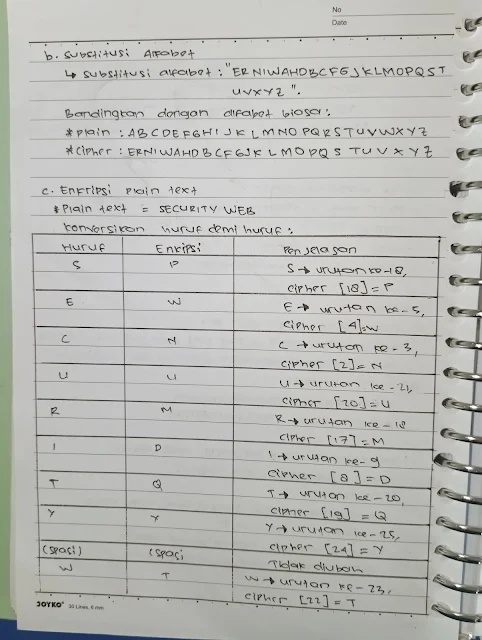 No
Date
b. Substitusi Alfabet
↳ substitusi alfabet : "ERNIWAHDBCFGJKLMOPQST
UVXYZ".
Bandingkan dengan alfabet biasa:
* Plain : ABCDEFGHIJKLMNOPQRSTUVWXYZ
* Cipher : ERNIWAHDBCFGJKLMOPQSTUVXYZ
c. Enkripsi Plain text
* Plain text = SECURITY WEB
konversikan huruf demi huruf :
Huruf Enkipsi Penjelasan
S P S → urutan ke-18,
cipher [18] = P
E W E → urutan ke-5,
cipher [4] = W
C N C → urutan ke-3,
cipher [2] = N
U U U → urutan ke-21,
cipher [20] = U
R M R → urutan ke-18
cipher [17] = M
I D I → urutan ke-9
cipher [8] = D
T Q T → urutan ke-20,
cipher [19] = Q
Y Y Y → urutan ke-25,
cipher [24] = Y
(spasi) (spasi Tidak diubah
W T W → urutan ke-23,
cipher [22] = T
JOYKO 30 Lines, 6 mm